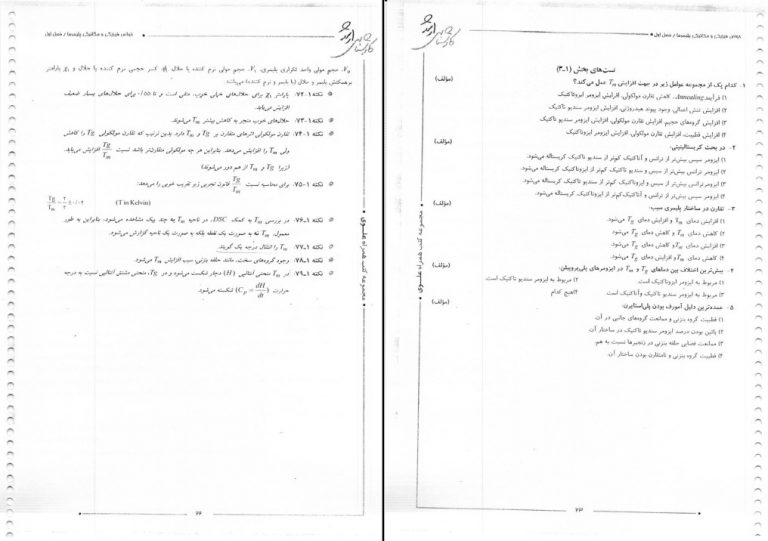 خواص فیزیکی و مکانیکی پلیمرها / فصل اول
تست‌های بخش (۱-۳)
۱- کدام یک از مجموعه عوامل زیر در جهت افزایش Tm عمل می‌کند؟ (مؤلف)
۱) فرآیند Annealing، کاهش تقارن مولکولی، افزایش ایزومر ایزوتاکتیک
۲) افزایش تنش اعمالی، وجود پیوند هیدروژنی، افزایش ایزومر سندیو تاکتیک
۳) افزایش گروه‌های حجیم، افزایش تقارن مولکولی، افزایش ایزومر سندیو تاکتیک
۴) افزایش قطبیت، افزایش تقارن مولکولی، افزایش ایزومر ایزوتاکتیک
۲- در بحث کریستالینیتی: (مؤلف)
۱) ایزومر سیس بیش‌تر از ترانس و آتاکتیک کم‌تر از سندیو تاکتیک کریستاله می‌شود.
۲) ایزومر ترانس بیش‌تر از سیس و سندیو تاکتیک کم‌تر از ایزوتاکتیک کریستاله می‌شود.
۳) ایزومر ترانس بیش‌تر از سیس و ایزوتاکتیک کم‌تر از سندیو تاکتیک کریستاله می‌شود.
۴) ایزومر سیس بیش‌تر از ترانس و آتاکتیک کم‌تر از ایزوتاکتیک کریستاله می‌شود.
۳- تقارن در ساختار پلیمری سبب: (مؤلف)
۱) افزایش دمای Tm و افزایش دمای Tg می‌شود.
۲) کاهش دمای Tm و کاهش دمای Tg می‌شود.
۳) افزایش دمای Tm و کاهش دمای Tg می‌شود.
۴) کاهش دمای Tm و افزایش دمای Tg می‌شود.
۴- بیش‌ترین اختلاف بین دماهای Tg و Tm در ایزومرهای پلی‌پروپیلن: (مؤلف)
۱) مربوط به ایزومر ایزوتاکتیک است. ۲) مربوط به ایزومر سندیو تاکتیک است.
۳) مربوط به ایزومر سندیو تاکتیک و آتاکتیک است. ۴) هیچ کدام
۵- عمده‌ترین دلیل آمورف بودن پلی‌استایرن: (مؤلف)
۱) قطبیت گروه بنزنی و ممانعت گروه‌های جانبی در آن.
۲) پائین بودن درصد ایزومر سندیو تاکتیک در ساختار آن.
۳) ممانعت فضایی حلقه بنزنی در زنجیرها نسبت به هم.
۴) قطبیت گروه بنزنی و نامتقارن بودن ساختار آن.
مجموعه کتب همراه
۲۳
خواص فیزیکی و مکانیکی پلیمرها / فصل اول
V₀، حجم مولی واحد تکراری پلیمری، V₁، حجم مولی نرم کننده یا حلال، کسر حجمی نرم کننده یا حلال و χ₁ پارامتر
برهمکنش پلیمر و حلال (یا پلیمر و نرم کننده) می‌باشد.
نکته ۱-۷۲: پارامتر χ₁ برای حلال‌های خیلی خوب، منفی است و تا ۰/۵۵ برای حلال‌های بسیار ضعیف
افزایش می‌یابد.
نکته ۱-۷۳: حلال‌های خوب منجر به کاهش بیشتر Tm می‌شوند.
نکته ۱-۷۴: تقارن مولکولی اثرهای متقارن بر Tg و Tm دارد. بدین ترتیب که تقارن مولکولی Tg را کاهش
ولی Tm را افزایش می‌دهد. بنابراین هر چه مولکولی متقارن‌تر باشد نسبت Tg/Tm افزایش می‌یابد.
(زیرا Tg و Tm از هم دور می‌شوند)
نکته ۱-۷۵: برای محاسبه نسبت Tg/Tm قانون تجربی زیر تقریب خوبی را می‌دهد:
(T in Kelvin)
نکته ۱-۷۶: در بررسی Tm به کمک DSC، در ناحیه Tm به چند پیک مشاهده می‌شود. بنابراین به طور
معمول، Tm نه به صورت یک نقطه بلکه به صورت یک ناحیه گزارش می‌شود.
نکته ۱-۷۷: Tm را انتقال درجه یک گویند.
نکته ۱-۷۸: وجود گروه‌های سخت، مانند حلقه بنزنی، سبب افزایش Tm می‌شود.
نکته ۱-۷۹: در Tm منحنی آنتالپی (H) دچار شکست می‌شود و در Tg، منحنی مشتق آنتالپی نسبت به درجه
حرارت (Cp = dH/dt) شکسته می‌شود.
مجموعه کتب همراه